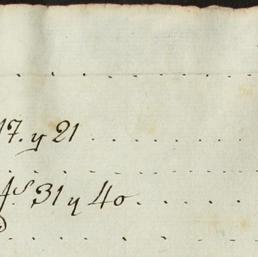 17. y 21
fs 31 y 40